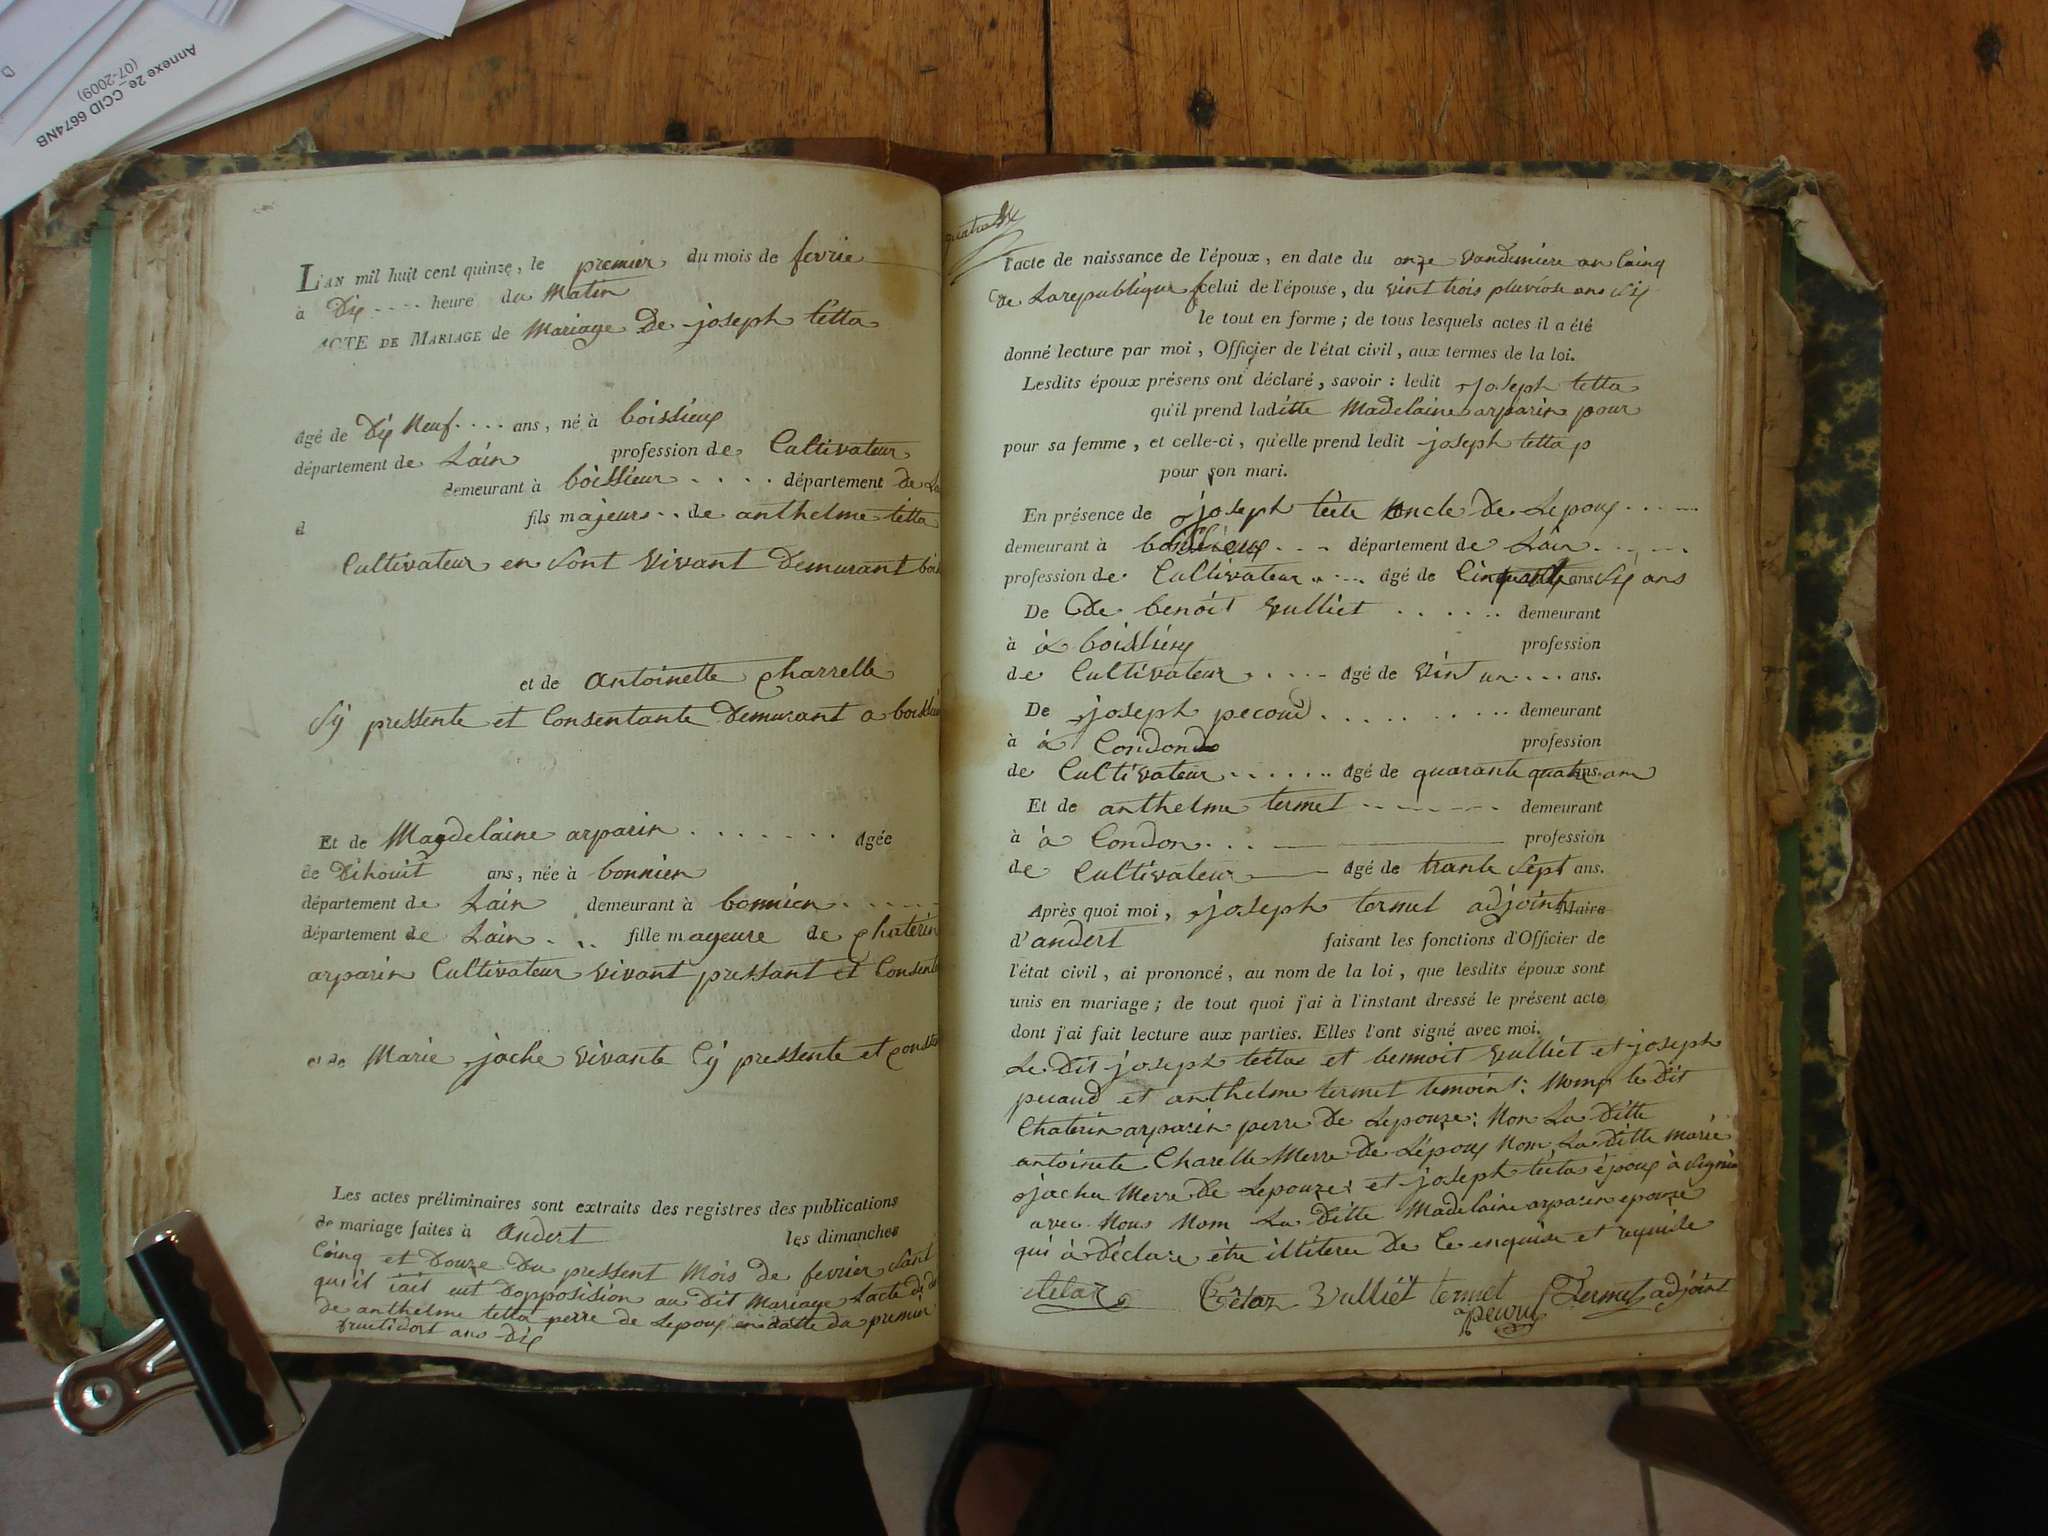 Annexe 2e_CCID 6674NB
(07-2009)
L'AN mil huit cent quinze, le premier du mois de fevrie
a Dix .... heure du Matin
ACTE DE MARIAGE de Mariage De joseph tetta
âgé de Dix Neuf .... ans, né à boissieux
département de Lain profession de Cultivateur
demeurant à boissieux .... département de La
fils majeurs .. de anthelme tetta
d
Cultivateur en sont vivant Demurant bois
et de Antoinette Charrelle
Sy pressente et Consentante Demurant a boissieu
Et de Magdelaine arparin ....... âgée
de Dihouit ans, née à bonnien
département de Lain demeurant à bonnien .....
département de Lain ... fille mageure de Chaterin
arparin Cultivateur vivant pressant et Consent
et de Marie jache vivante Cy pressente et Consen
Les actes préliminaires sont extraits des registres des publications
de mariage faites à Andert les dimanches
Coinq et Douze Du pressent Mois de fevrier sant
qu'il iait eut Dopposision au Dit Mariage Lacte de de
de anthelme tetta perre de Lepoux en datte du premier
fruttidort ans Dix
quatre
l'acte de naissance de l'époux, en date du onze vandemiere an Cainq
de La republique celui de l'épouse, du vint trois pluviose ans Six
le tout en forme; de tous lesquels actes il a été
donné lecture par moi, Officier de l'état civil, aux termes de la loi.
Lesdits époux présens ont déclaré, savoir: ledit joseph tetta
qu'il prend laditte Madelaine arparin pour
pour sa femme, et celle-ci, qu'elle prend ledit joseph tetta p
pour son mari.
En présence de joseph tete oncle de Lepoux .....
demeurant à boissieux ... département de Lain .....
profession de Cultivateur .... âgé de Cinquante ans Six ans
De De benoit vulliet ...... demeurant
à à boissieux profession
de Cultivateur ..... âgé de vint un .... ans.
De joseph pecoud .......... demeurant
à à Condond profession
de Cultivateur ....... âgé de quarante quatre ans an
Et de anthelme termet ------- demeurant
à à Condon ... profession
de Cultivateur âgé de trante Sept ans.
Après quoi moi, joseph termet adjoint Maire
d'andert faisant les fonctions d'Officier de
l'état civil, ai prononcé, au nom de la loi, que lesdits époux sont
unis en mariage; de tout quoi j'ai à l'instant dressé le présent acte
dont j'ai fait lecture aux parties. Elles l'ont signé avec moi.
Le Dit joseph tettaz et bennoit vulliet et joseph
pecaud et anthelme termet temoint: Nomp le Dit
Chaterin arparin perre de Lepouze: Non La Ditte
antoinete Charelle Merre De Lépoux Nom La ditte marie
jacha Merre De Lepouze: et joseph teita époux à Signié
avec Nous Nom La Ditte Madelaine arparin epouze
qui à Declare être illiteree De Ce enquise et requise
tetaz tetaz Vulliét termet Termet adjoint